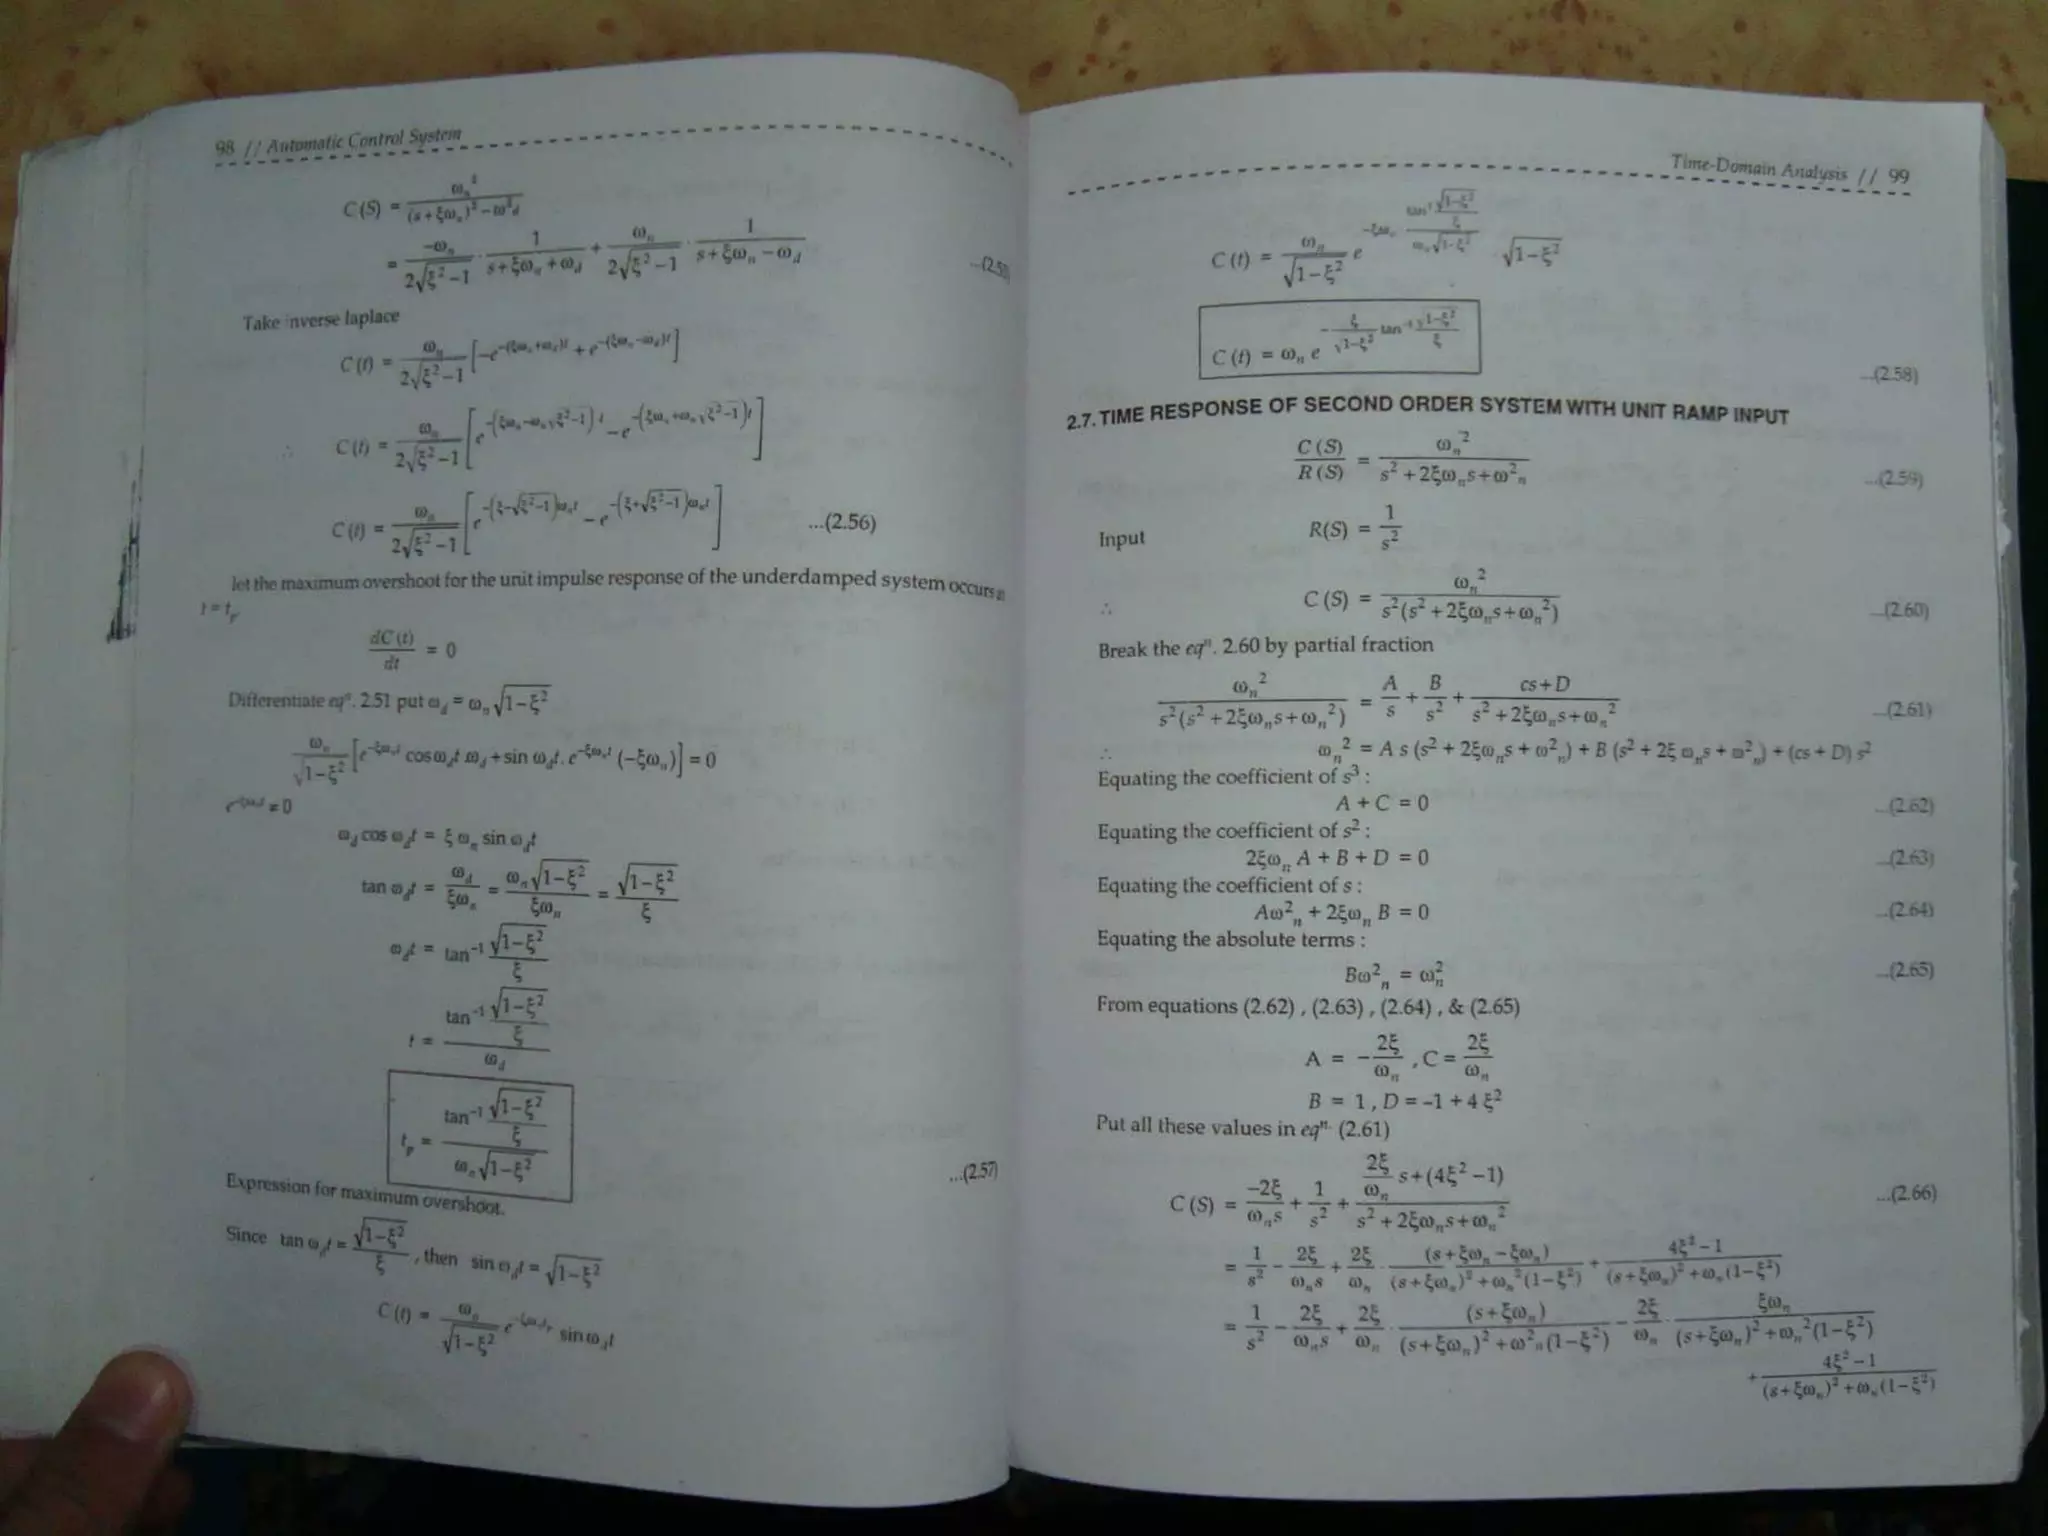 98 // Automatic Control System
C (S) = ω_n^2 / ((s + ξω_n)^2 − ω^2_d)
= −ω_n / (2√(ξ^2 −1)) · 1 / (s + ξω_n + ω_d) + ω_n / (2√(ξ^2 −1)) · 1 / (s + ξω_n − ω_d)
Take inverse laplace
C (t) = ω_n / (2√(ξ^2 −1)) [−e^{−(ξω_n +ω_d)t} + e^{−(ξω_n −ω_d)t}]
∴ C (t) = ω_n / (2√(ξ^2 −1)) [e^{−(ξω_n −ω_n√(ξ^2 −1)) t} − e^{−(ξω_n +ω_n√(ξ^2 −1))t}]
C (t) = ω_n / (2√(ξ^2 −1)) [e^{−(ξ−√(ξ^2 −1))ω_n t} − e^{−(ξ+√(ξ^2 −1))ω_n t}] ...(2.56)
let the maximum overshoot for the unit impulse response of the underdamped system occurs at
t = t_p
dC (t) / dt = 0
Differentiate eq^n. 2.51 put ω_d = ω_n √(1−ξ^2)
ω_n / √(1−ξ^2) [e^{−ξω_n t} cosω_d t .ω_d + sin ω_d t. e^{−ξω_n t} (−ξω_n)] = 0
e^{−ξω_n t} ≠ 0
ω_d cos ω_d t = ξ ω_n sin ω_d t
tan ω_d t = ω_d / ξω_n = ω_n√(1−ξ^2) / ξω_n = √(1−ξ^2) / ξ
ω_d t = tan^{−1} √(1−ξ^2) / ξ
t = (tan^{−1} √(1−ξ^2) / ξ) / ω_d
t_p = (tan^{−1} √(1−ξ^2) / ξ) / (ω_n √(1−ξ^2)) ...(2.57)
Expression for maximum overshoot.
Since tan ω_d t = √(1−ξ^2) / ξ , then sin ω_d t = √(1−ξ^2)
C (t) = ω_n / √(1−ξ^2) e^{−ξω_n t_p} sin ω_d t
Time-Domain Analysis // 99
C (t) = ω_n / √(1−ξ^2) e^{−ξω_n (tan^{−1} √(1−ξ^2) / ξ) / (ω_n √(1−ξ^2))} · √(1−ξ^2)
C (t) = ω_n e^{− ξ / √(1−ξ^2) tan^{−1} √(1−ξ^2) / ξ} ...(2.58)
2.7. TIME RESPONSE OF SECOND ORDER SYSTEM WITH UNIT RAMP INPUT
C (S) / R (S) = ω_n^2 / (s^2 + 2ξω_n s + ω^2_n) ...(2.59)
Input R(S) = 1 / s^2
∴ C (S) = ω_n^2 / (s^2(s^2 + 2ξω_n s + ω_n^2)) ...(2.60)
Break the eq^n. 2.60 by partial fraction
ω_n^2 / (s^2(s^2 + 2ξω_n s + ω_n^2)) = A / s + B / s^2 + (cs + D) / (s^2 + 2ξω_n s + ω_n^2) ...(2.61)
∴ ω_n^2 = A s (s^2 + 2ξω_n s + ω^2_n) + B (s^2 + 2ξ ω_n s + ω^2_n) + (cs + D) s^2
Equating the coefficient of s^3 :
A + C = 0 ...(2.62)
Equating the coefficient of s^2 :
2ξω_n A + B + D = 0 ...(2.63)
Equating the coefficient of s :
Aω^2_n + 2ξω_n B = 0 ...(2.64)
Equating the absolute terms :
Bω^2_n = ω_n^2 ...(2.65)
From equations (2.62) , (2.63) , (2.64) , & (2.65)
A = − 2ξ / ω_n , C = 2ξ / ω_n
B = 1 , D = −1 + 4 ξ^2
Put all these values in eq^n. (2.61)
C (S) = −2ξ / ω_n s + 1 / s^2 + (2ξ / ω_n s + (4ξ^2 −1)) / (s^2 + 2ξω_n s + ω_n^2) ...(2.66)
= 1 / s^2 − 2ξ / ω_n s + 2ξ / ω_n · (s + ξω_n − ξω_n) / ((s + ξω_n)^2 + ω_n^2(1−ξ^2)) + (4ξ^2 −1) / ((s + ξω_n)^2 + ω_n(1−ξ^2))
= 1 / s^2 − 2ξ / ω_n s + 2ξ / ω_n · (s + ξω_n) / ((s + ξω_n)^2 + ω^2_n(1−ξ^2)) − 2ξ / ω_n · ξω_n / ((s + ξω_n)^2 + ω_n^2(1−ξ^2))
+ (4ξ^2 −1) / ((s + ξω_n)^2 + ω_n(1−ξ^2))